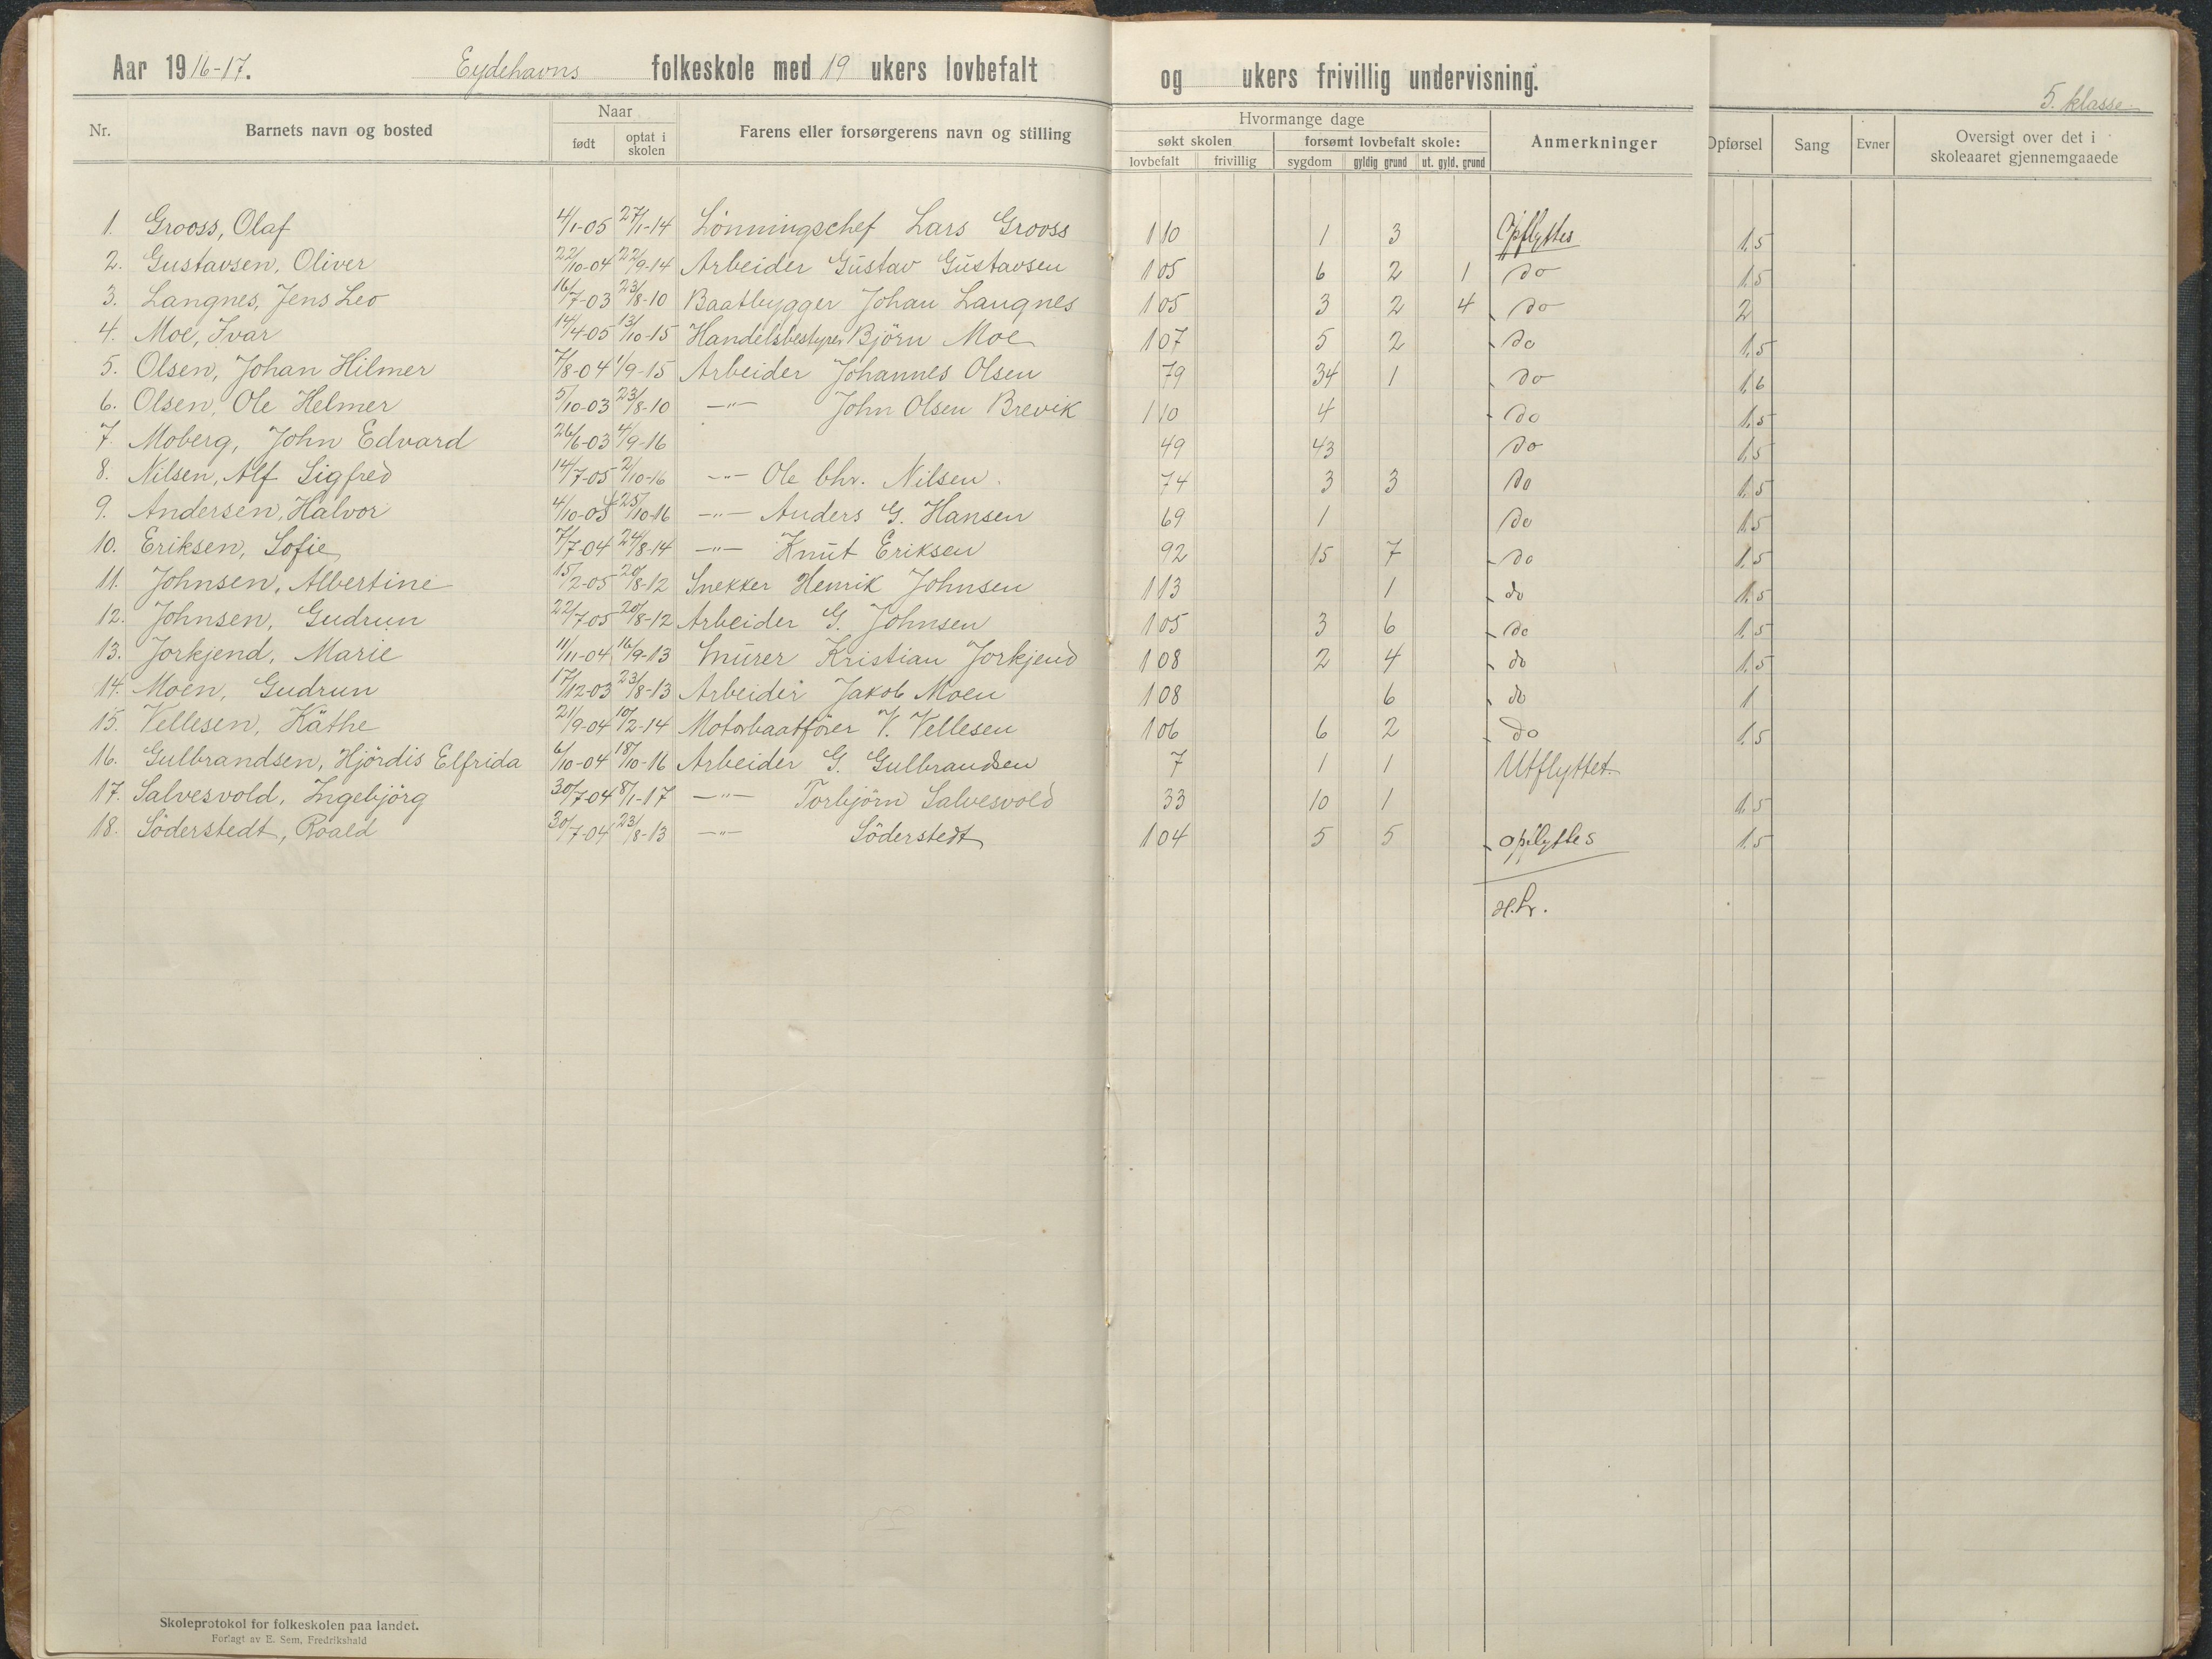 Aar 1916-17. Eydehavns folkeskole med 19 ukers lovbefalt og ukers frivillig undervisning.
5. klasse
Nr. Barnets navn og bosted Naar født optat i skolen Farens eller forsørgerens navn og stilling Hvormange dage søkt skolen lovbefalt frivillig forsømt lovbefalt skole: sygdom gyldig grund ut. gyld. grund Anmerkninger Opførsel Sang Evner Oversigt over det i skoleaaret gjennemgaaede
1. Grooss, Olaf 4/1-05 27/1-14 Lønningschef Lars Grooss 110 1 3 Opflyttes 1,5
2. Gustavsen, Oliver 22/10-04 22/9-14 Arbeider Gustav Gustavsen 105 6 2 1 do 1,5
3. Langnes, Jens Leo 16/7-03 23/8-10 Baatbygger Johan Langnes 105 3 2 4 do 2
4. Moe, Ivar 14/4-05 13/10-15 Handelsbestyrer Björn Moe 107 5 2 do 1,5
5. Olsen, Johan Hilmer 7/8-04 1/9-15 Arbeider Johannes Olsen 79 34 1 do 1,6
6. Olsen, Ole Helmer 5/10-03 23/8-10 -"- John Olsen Brevik 110 4 do 1,5
7. Moberg, John Edvard 26/6-03 4/9-16 49 43 do 1,5
8. Nilsen, Alf Sigfred 14/7-05 2/10-16 -"- Ole Chr. Nilsen. 74 3 3 do 1,5
9. Andersen, Halvor 4/10-04 25/10-16 -"- Anders G. Hansen 69 1 do 1,5
10. Eriksen, Sofie 7/7-04 24/8-14 -"- Knut Eriksen 92 15 7 do 1,5
11. Johnsen, Albertine 15/2-05 20/8-12 Snekker Henrik Johnsen 113 1 do 1,5
12. Johnsen, Gudrun 22/7-05 20/8-12 Arbeider G. Johnsen 105 3 6 do 1,5
13. Jorkjend, Marie 11/11-04 16/9-13 Murer Kristian Jorkjend 108 2 4 do 1,5
14. Moen, Gudrun 17/12-03 23/8-13 Arbeider Jakob Moen 108 6 do 1
15. Vellesen, Käthe 21/9-04 10/2-14 Motorbaatfører V. Vellesen 106 6 2 do 1,5
16. Gulbrandsen, Hjördis Elfrida 6/10-04 18/10-16 Arbeider G. Gulbrandsen 7 1 1 Utflyttet
17. Salvesvold, Ingebjörg 30/7-04 8/1-17 -"- Torbjörn Salvesvold 33 10 1 1,5
18. Söderstedt, Roald 30/7-04 23/8-13 -"- Söderstedt 104 5 5 opflyttes 1,5
Skoleprotokol for folkeskolen paa landet.
Forlagt av E. Sem, Fredrikshald